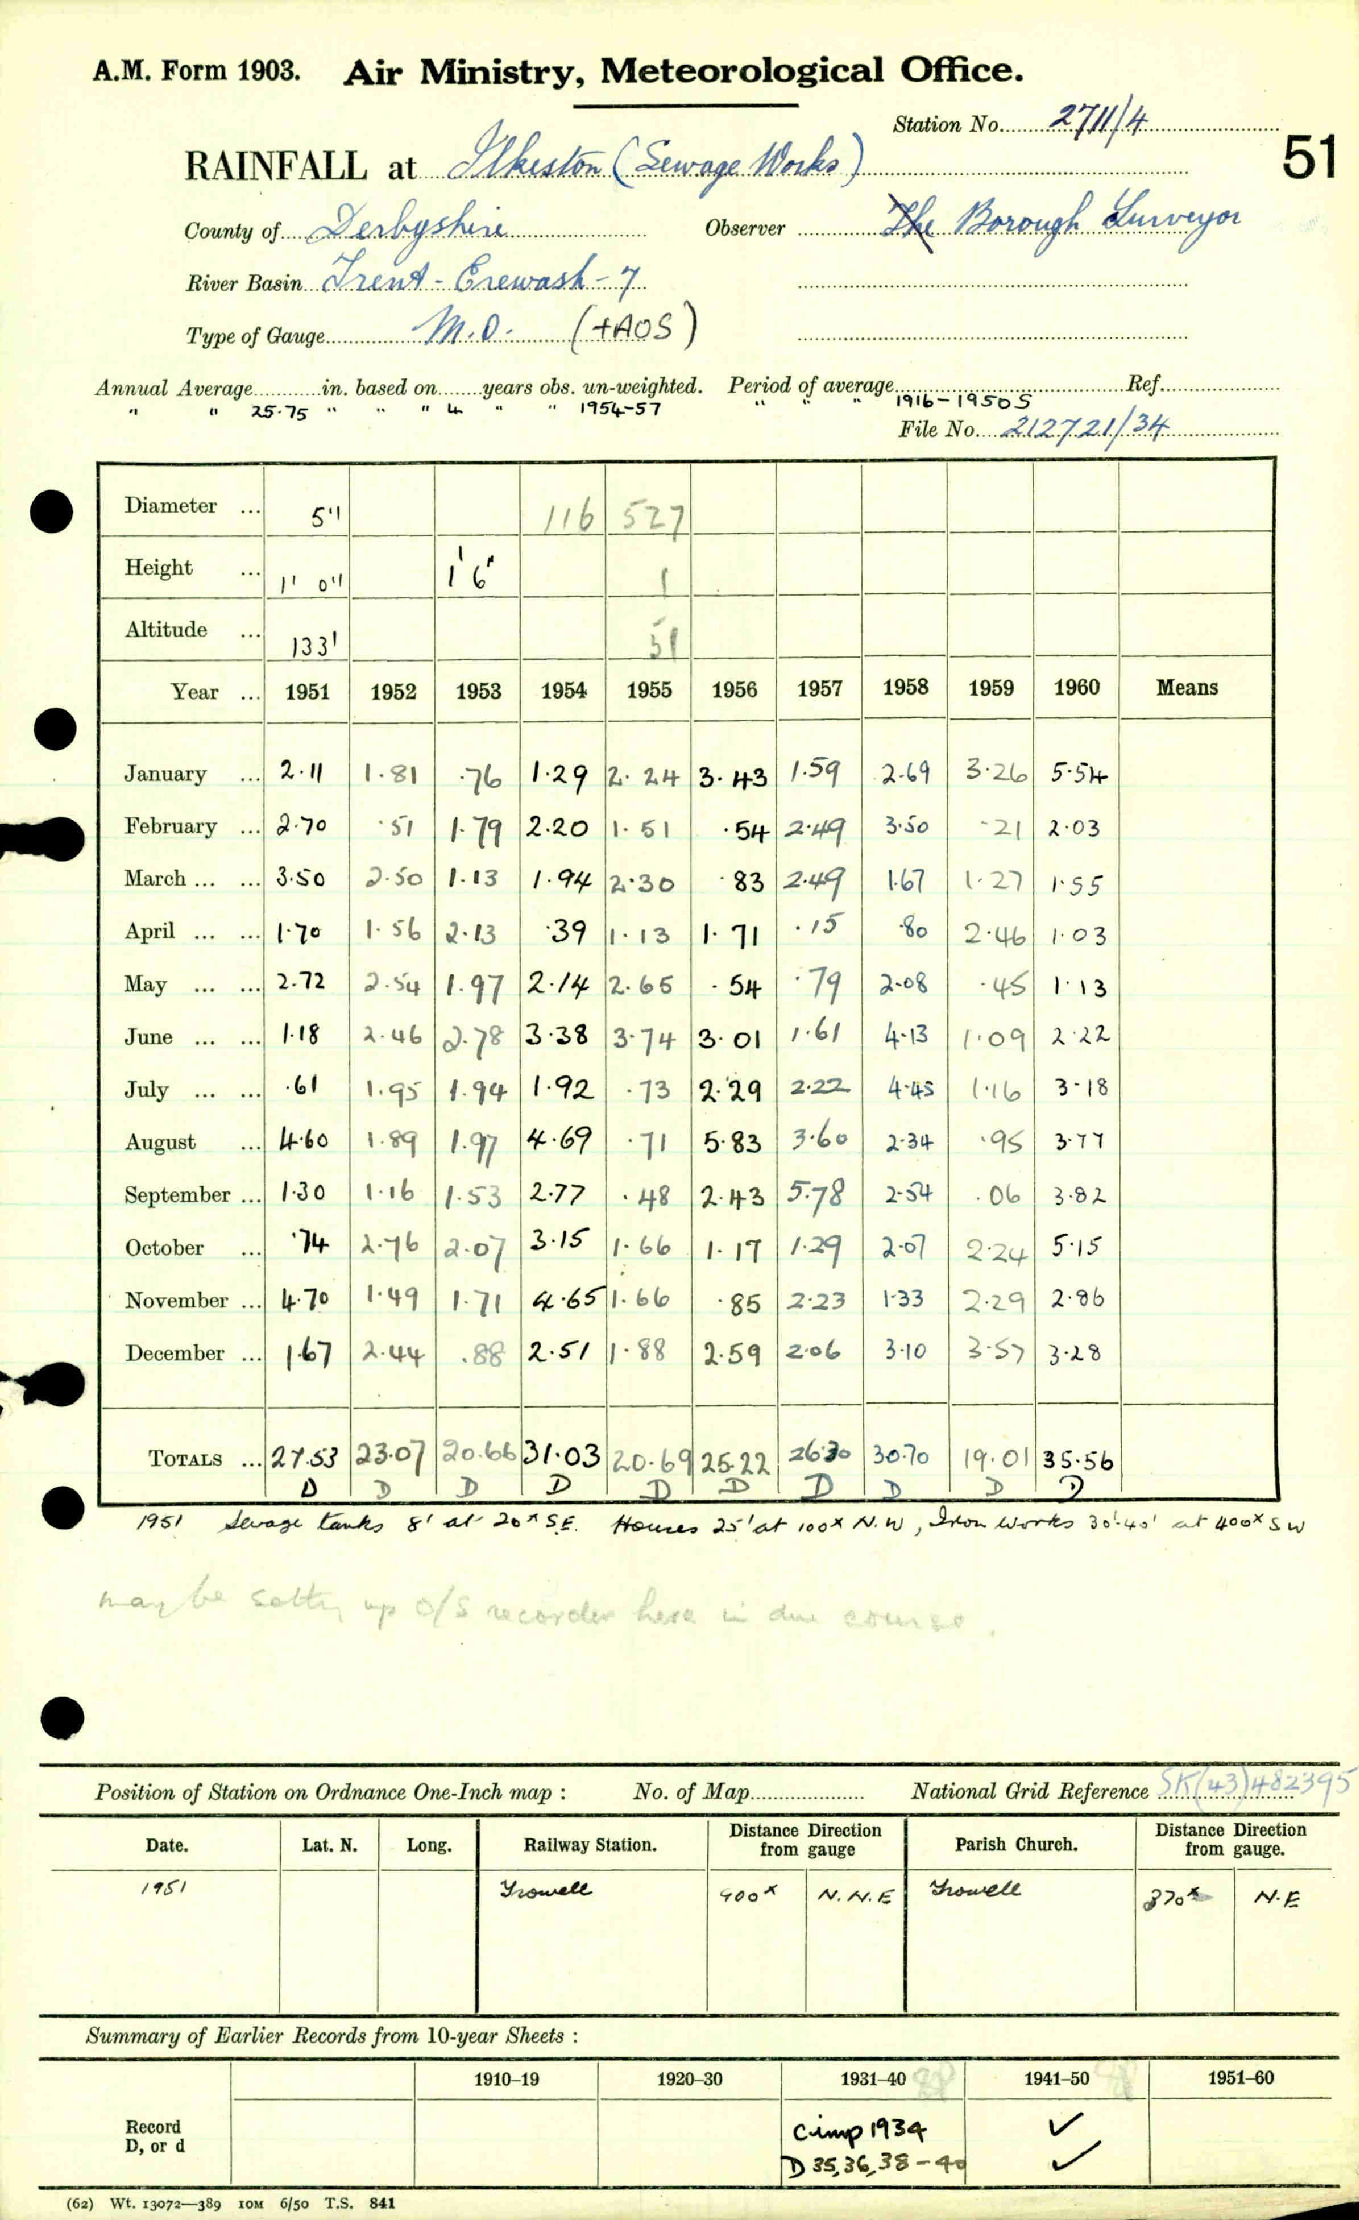 A.M. Form 1903. Air Ministry, Meteorological Office.
Station No. 2711/4
51
RAINFALL at Ilkeston (Sewage Works)
County of Derbyshire Observer The Borough Surveyor
River Basin Trent - Erewash - 7
Type of Gauge M.O. (+AOS)
Annual Average in. based on years obs. un-weighted. Period of average Ref.
" " 25.75 " " " 4 " " 1954-57 " " " 1916-1950S
File No. 212721/34
Diameter ... 5" 116 527
Height ... 1' 0" 1' 6" 1
Altitude ... 133' 51
Year ... 1951 1952 1953 1954 1955 1956 1957 1958 1959 1960 Means
January ... 2.11 1.81 .76 1.29 2.24 3.43 1.59 2.69 3.26 5.54
February ... 2.70 .51 1.79 2.20 1.51 .54 2.49 3.50 .21 2.03
March ... ... 3.50 2.50 1.13 1.94 2.30 .83 2.49 1.67 1.27 1.55
April ... ... 1.70 1.56 2.13 .39 1.13 1.71 .15 .80 2.46 1.03
May ... ... 2.72 2.54 1.97 2.14 2.65 .54 .79 2.08 .45 1.13
June ... ... 1.18 2.46 2.78 3.38 3.74 3.01 1.61 4.13 1.09 2.22
July ... ... .61 1.95 1.94 1.92 .73 2.29 2.22 4.45 1.16 3.18
August ... 4.60 1.89 1.97 4.69 .71 5.83 3.60 2.34 .95 3.77
September ... 1.30 1.16 1.53 2.77 .48 2.43 5.78 2.54 .06 3.82
October ... .74 2.76 2.07 3.15 1.66 1.17 1.29 2.07 2.24 5.15
November ... 4.70 1.49 1.71 4.65 1.66 .85 2.23 1.33 2.29 2.86
December ... 1.67 2.44 .88 2.51 1.88 2.59 2.06 3.10 3.57 3.28
TOTALS ... 27.53 23.07 20.66 31.03 20.69 25.22 26.30 30.70 19.01 35.56
D D D D D D D D D D
1951 Sewage tanks 8' at 20x S.E. Houses 25' at 100x N.W, Iron Works 30'-40' at 400x SW
may be setting up O/S recorder here in due course.
Position of Station on Ordnance One-Inch map : No. of Map National Grid Reference SK(43)482395
Date. Lat. N. Long. Railway Station. Distance from gauge Direction Parish Church. Distance from gauge. Direction
1951 Trowell 900x N.N.E Trowell 870x N.E
Summary of Earlier Records from 10-year Sheets :
1910–19 1920–30 1931–40 1941–50 1951–60
Record D, or d C imp 1934 ✓
D 35,36,38-40 ✓
(62) Wt. 13072—389 10M 6/50 T.S. 841